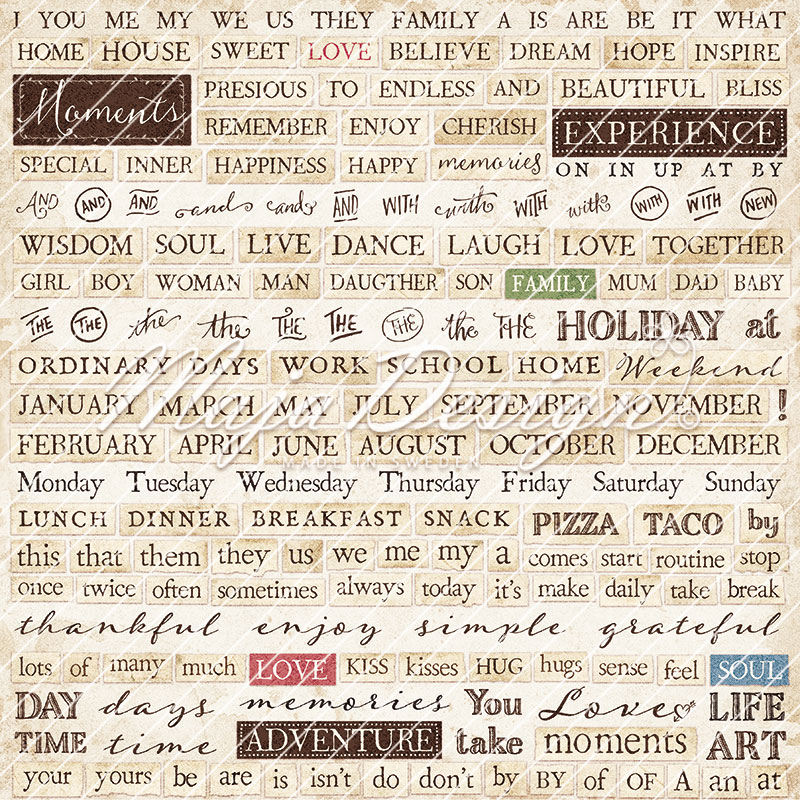 I YOU ME MY WE US THEY FAMILY A IS ARE BE IT WHAT
HOME HOUSE SWEET LOVE BELIEVE DREAM HOPE INSPIRE
Moments PRESIOUS TO ENDLESS AND BEAUTIFUL BLISS
REMEMBER ENJOY CHERISH EXPERIENCE
SPECIAL INNER HAPPINESS HAPPY memories ON IN UP AT BY
AND AND AND and and AND WITH with WITH with WITH WITH NEW
WISDOM SOUL LIVE DANCE LAUGH LOVE TOGETHER
GIRL BOY WOMAN MAN DAUGTHER SON FAMILY MUM DAD BABY
THE THE the the THE THE THE the THE HOLIDAY at
ORDINARY DAYS WORK SCHOOL HOME Weekend
JANUARY MARCH MAY JULY SEPTEMBER NOVEMBER !
FEBRUARY APRIL JUNE AUGUST OCTOBER DECEMBER
Maja Design ©
MADE IN SWEDEN
Monday Tuesday Wednesday Thursday Friday Saturday Sunday
LUNCH DINNER BREAKFAST SNACK PIZZA TACO by
this that them they us we me my a comes start routine stop
once twice often sometimes always today it's make daily take break
thankful enjoy simple grateful
lots of many much LOVE KISS kisses HUG hugs sense feel SOUL
DAY days memories You Love LIFE
TIME time ADVENTURE take moments ART
your yours be are is isn't do don't by BY of OF A an at